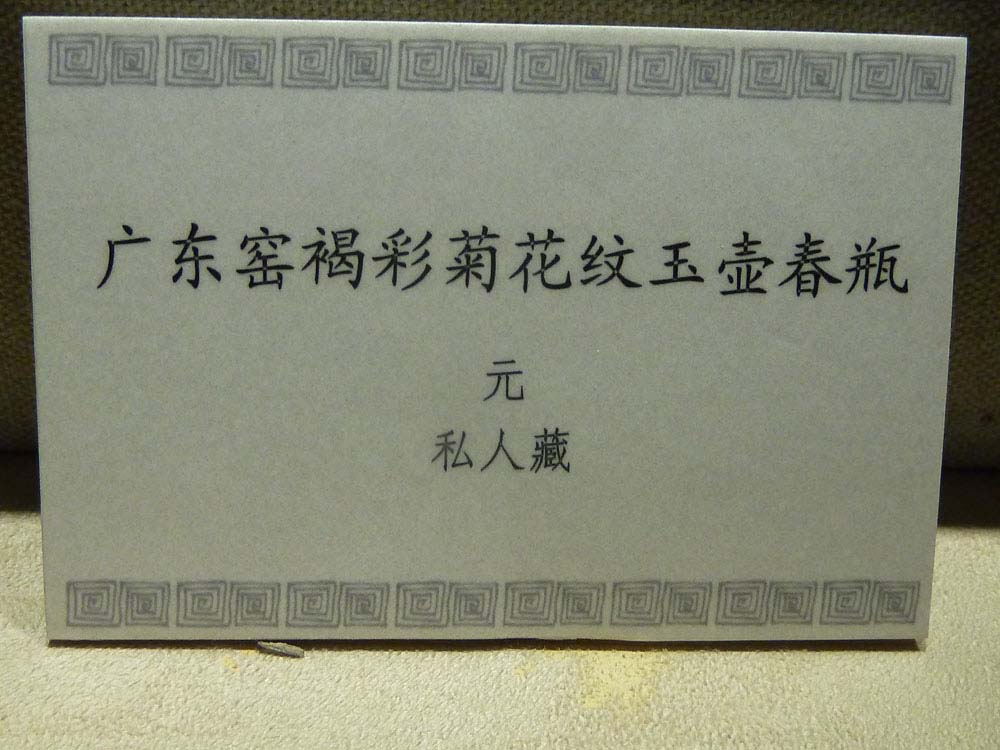 广东窑褐彩菊花纹玉壶春瓶
元
私人藏